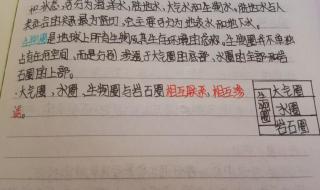 和状态,可分为海洋水、陆地水、大气水和生物水,陆地水与人
类生活的关系最为密切,它主要可分为地表水和地下水。
生物圈是地球上所有生物及其生存环境的总称,生物圈并不单独
占有任何空间,而是分别渗透于大气圈的底部、水圈的全部和岩
石圈的上部。
·大气圈、水圈、生物圈与岩石圈相互联系,相互渗
透。
生物圈
大气圈
水圈
岩石圈